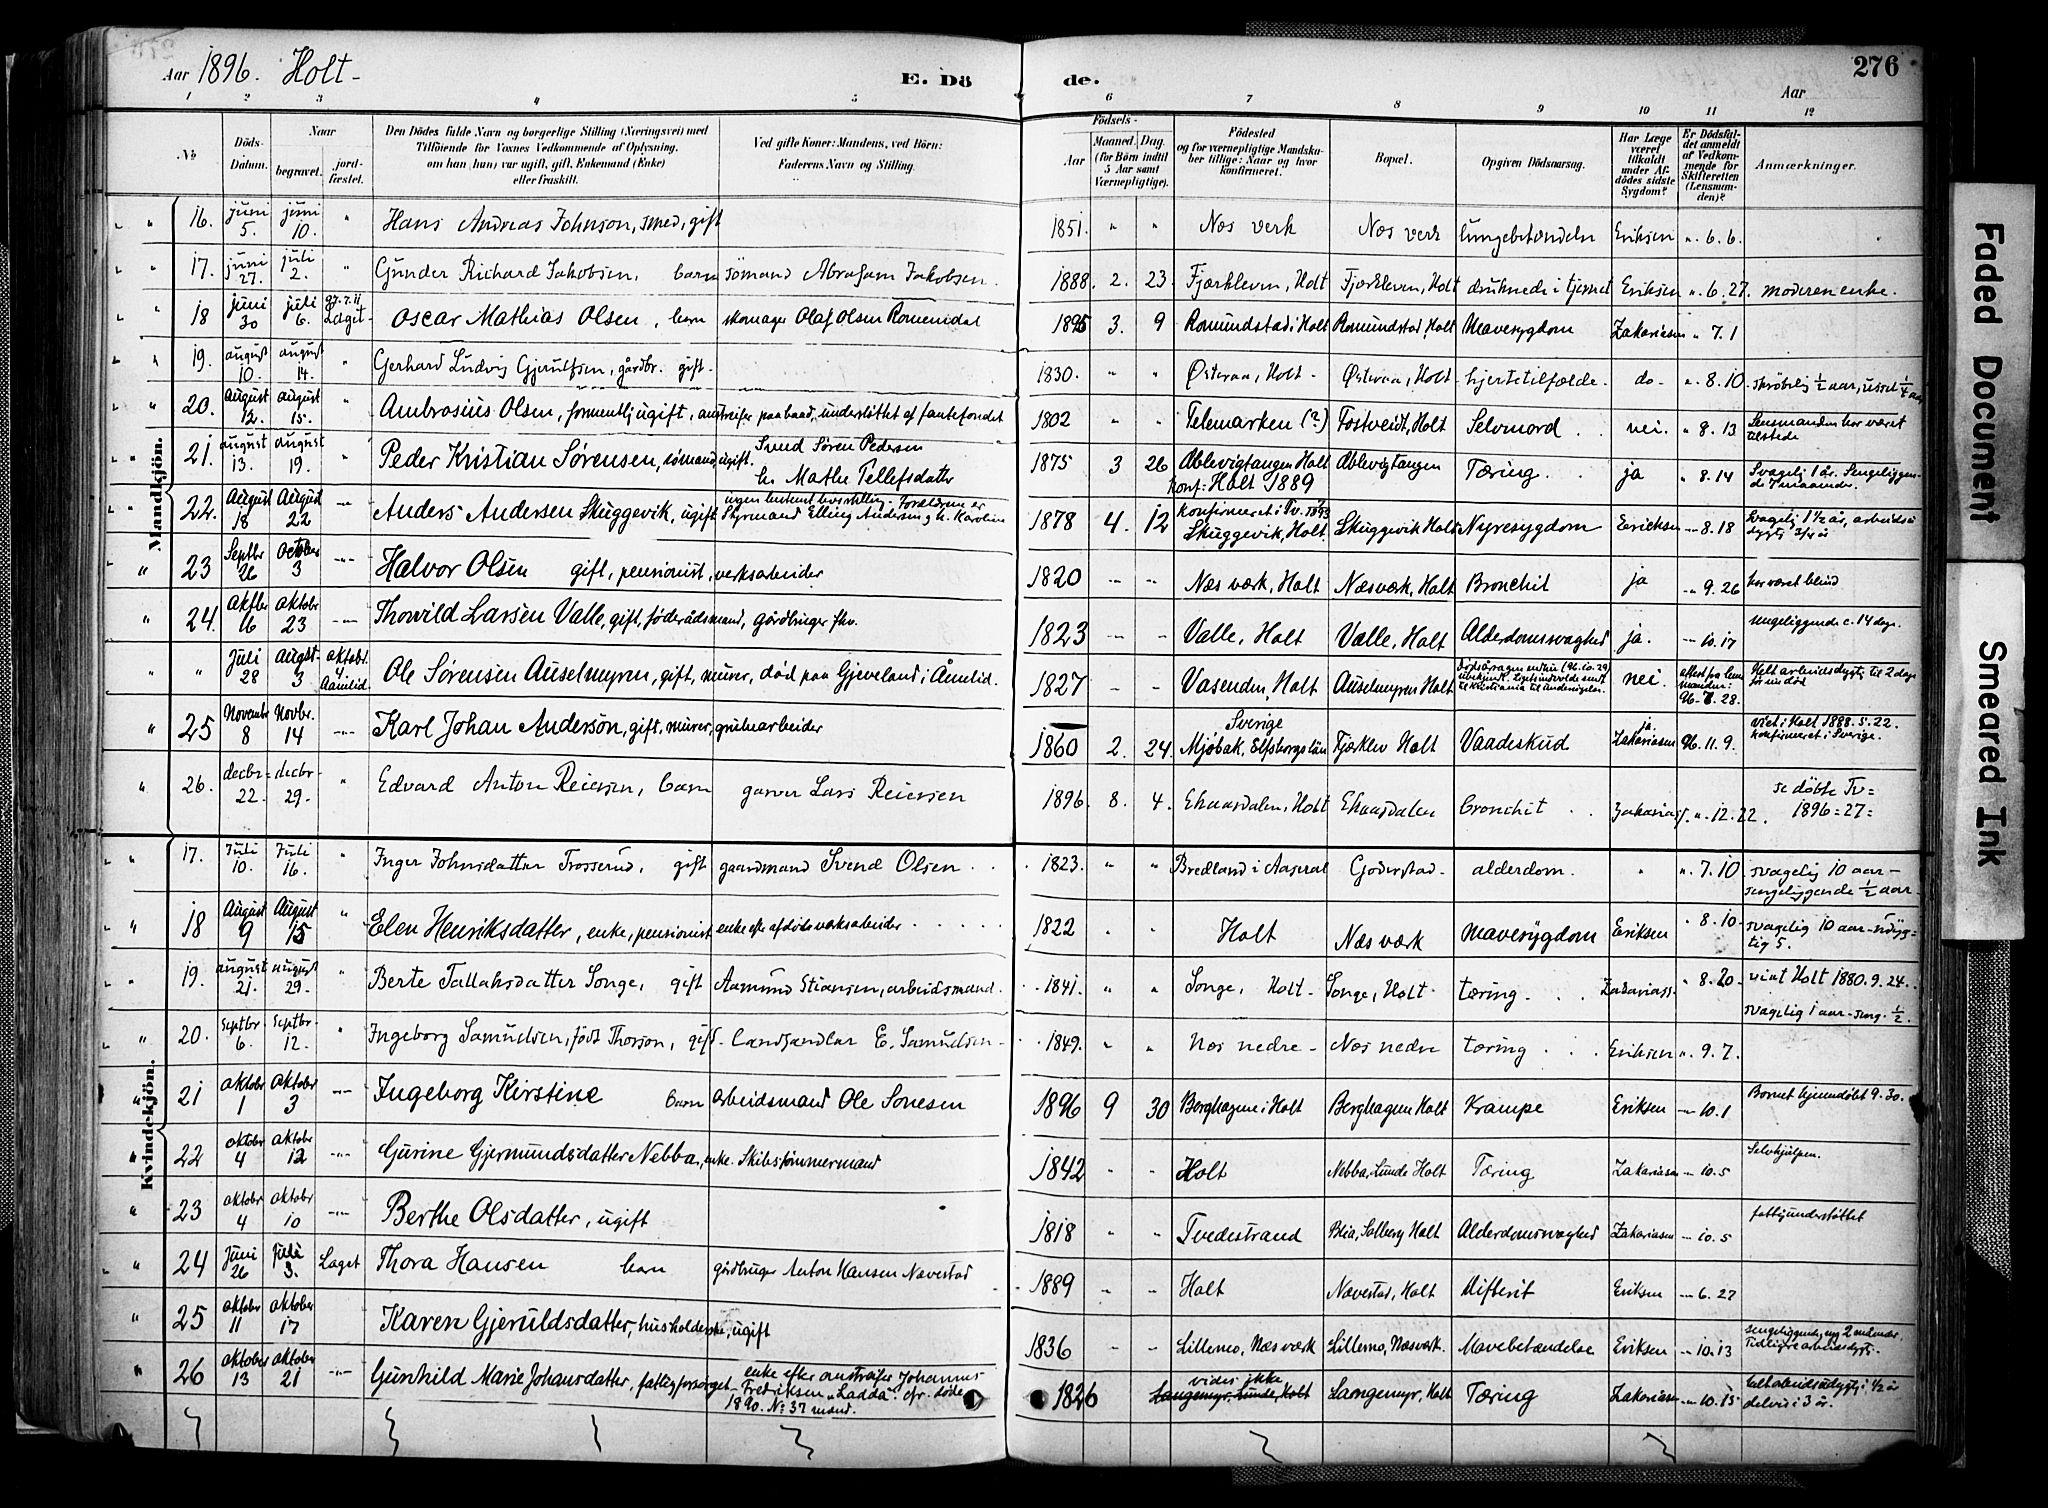 Aar 1896. Holt-
E. Döde.
Aar
276
1 2 3 4 5 6 7 8 9 10 11 12
№
Döds-Datum.
Naar begravet.
jord-fæstet.
Den Dödes fulde Navn og borgerlige Stilling (Næringsvei) med Tilföiende for Voxnes Vedkommende af Oplysning, om han (hun) var ugift, gift, Enkemand (Enke) eller fraskilt.
Ved gifte Koner: Mandens, ved Börn: Faderens Navn og Stilling.
Födsels-
Aar
Maaned. Dag. (for Börn indtil 5 Aar samt Værnepligtige).
Födested og for værnepligtige Mandskaber tillige: Naar og hvor konfirmeret.
Bopæl.
Opgiven Dödsaarsag.
Har Læge været tilkaldt under Afdödes sidste Sygdom?
Er Dödsfaldet anmeldt af Vedkommende for Skifteretten (Lensmanden)?
Anmærkninger.
Mandkjön.
16. juni 5. juni 10. " Hans Andreas Johnson, smed, gift 1851. " " Næs verk Næs verk lungebetændeln Eriksen " 6. 6.
17. juni 27. juli 2. " Gunder Richard Jakobsen, barn sömand Abraham Jakobsen. 1888. 2. 23. Fjærkleven, Holt Fjærkleven, Holt druknede i tjernet Eriksen " 6. 27. moderen enke.
18 juni 30 juli 6. Laget Oscar Mathias Olsen, barn skomager Olaf Olsen Romendal 1895 3. 9 Romundstad i Holt Romundstad, Holt Mavesygdom Zakariasen " 7. 1
19. august 10. august 14. " Gerhard Ludvig Gjerulfsen, gårdbr. gift. 1830. " " Østeraa, Holt- Østeraa, Holt hjertetilfælde. do- " 8. 10. skröbelig ½ aar, ussel ¼ aar
20. august 12. august 15. " Ambrosius Olsen, formentlig ugift, omstreifer paa baad, understöttet af fantefondet 1802 " " Telemarken (?) Fostveidt, Holt Selvmord nei. " 8. 13 Lensmanden har været tilstede
21. august 13. august 19. " Peder Kristian Sørensen, sømand, ugift. Svend Søren Pedersen h. Mathe Tellefsdatter 1875 3 26 Ablevigtangen Holt Konf: Holt 1889 Ablevigtangen Tæring. ja " 8. 14 Svagelig 1 år. Sengeliggende 7 maaneder.
22. August 18 August 22 Anders Andersen Skuggevik, ugift ingen bestemt livsstilling. Forældrene er Styrmand Elling Andersen og h. Karoline 1878 4. 12 konfirmeret i Tv. 1893 Skuggevik, Holt. Skuggevik Holt Nyresygdom Ericksen 8. 18 Svagelig 1½ år, arbeidsudygtig 3/4 år
23 Septbr 26 October 3 Halvor Olsen gift, pensionist, verksarbeider 1820 Næs værk, Holt Næsværk, Holt Bronchit ja 9. 26 har været blind
24. oktbr 16 oktobr 23 Thorvild Larsen Valle, gift, føderådsmand, gårdbruger fhv. 1823 Valle, Holt Valle, Holt Alderdomssvaghed ja. 10. 17 sengeliggende c. 14 dage.
" Juli 28 Augst 3 oktobr. 4. Aamlid. Ole Sørensen Auselmyren, gift, murer, død paa Gjeveland i Åmlid. 1827 Vasenden, Holt Auselmyren Holt nei. 28. Helt arbeidsdygtig til 2 dage før sin död
25 Novembr 8 Novbr. 14 Karl Johan Anderson, gift, murer, grubearbeider 1860 2. 24. Sverige Mjöbak, Elfsborgs län Fjæklev Holt Vaadeskud ja Zakariasen 96. 11. 9. viet i Holt 1888. 5. 22. konfirmeret i Sverige.
26. decbr- 22. decbr- 29. " Edvard Anton Reiersen, barn garver Lars Reiersen 1896. 8. 4. Ekaasdalen, Holt Ekaasdalen bronchit Zakarias. " 12. 22. se döbte Tv= 1896=27=
Kvindekjön.
17. Juli 10. Juli 16. " Inger Johnsdatter Trosserud, gift gaardmand Svend Olsen 1823. " " Bredland i Aaseral Goderstad- alderdom. " " 7. 10 svagelig 10 aar- sengeliggende ½ aar-
18 August 9 August 15 " Elen Henriksdatter, enke, pensionist enke efter afdöde verksarbeider 1822 " " Holt Næs værk mavesygdom Eriksen " 8. 10. svagelig 10 aar- udygtig 5.
19. august 21. august 29. " Berte Tallaksdatter Songe, gift Aamund Stiansen, arbeidsmand. 1841. " " Songe, Holt- Songe, Holt tæring. Zakariass. " 8. 20. viet Holt 1880. 9. 24. svagelig 1 aar-seng. ½.
20. septbr- 6. septbr- 12. " Ingeborg Samuelsen, født Thorson, gift- landhandler E. Samuelsen- 1849. " " Næs nedre- Næs nedre tæring Eriksen " 9. 7.
21 oktobr 1 oktobr 3 Ingeborg Kirstine barn arbeidsmand Ole Sonesen 1896 9 30 Berghagen i Holt Berghagen Holt Krampe Eriksen 10. 1 Barnet hjemmedøbt 9. 30.
22 oktobr 4 oktobr 12 Gurine Gjermundsdatter Nebba, enke. Skibstømmermand 1842 Holt Nebba, Lunde Holt Tæring Zakariasen 10. 5 Selvhjulpen.
23 oktobr 4 oktobr 10 Berthe Olsdatter, ugift 1818 Tvedestrand Solberg Holt Alderdomssvaghed Zakariasen 10. 5 fattigunderstöttet
24 Juni 26 Juli 3. Laget Thora Hansen barn gårdbruger Anton Hansen Nævestad 1889 Holt Nævestad, Holt Difterit Eriksen 6. 27
25 oktober 11 oktober 17 Karen Gjeruldsdatter, husholderske, ugift 1836 Lillemo, Næsværk Lillemo, Næsværk. Mavebetændelse Eriksen 10. 13 sengeliggende 2 måneder. Tidligere arbeidsdygtig.
26 oktobr 13 oktobr 21 Gunhild Marie Johansdatter, fattigforsørget- enke efter omstreifer Johannes Fredriksen "Ladda". cfr. døde 1890. No 37 mand. 1826 vides ikke Langemyr, Lunde, Holt Langemyr, Holt Tæring Zakariasen 10. 15 helt arbeidsudygtig i ½ år delvis i 3 år.
Faded Document
Smeared Ink